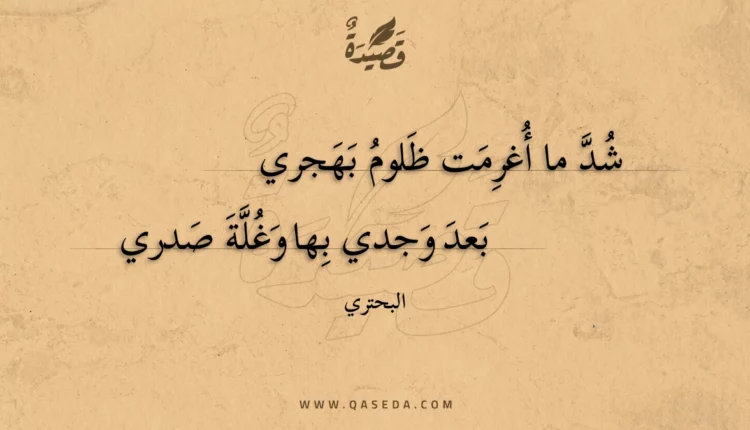 قَصِيْدَةٌ
شُدَّ ما أُغرِمَت ظَلومُ بَهَجري
بَعدَ وَجدي بِها وَغُلَّةَ صَدري
البحتري
WWW.QASEDA.COM